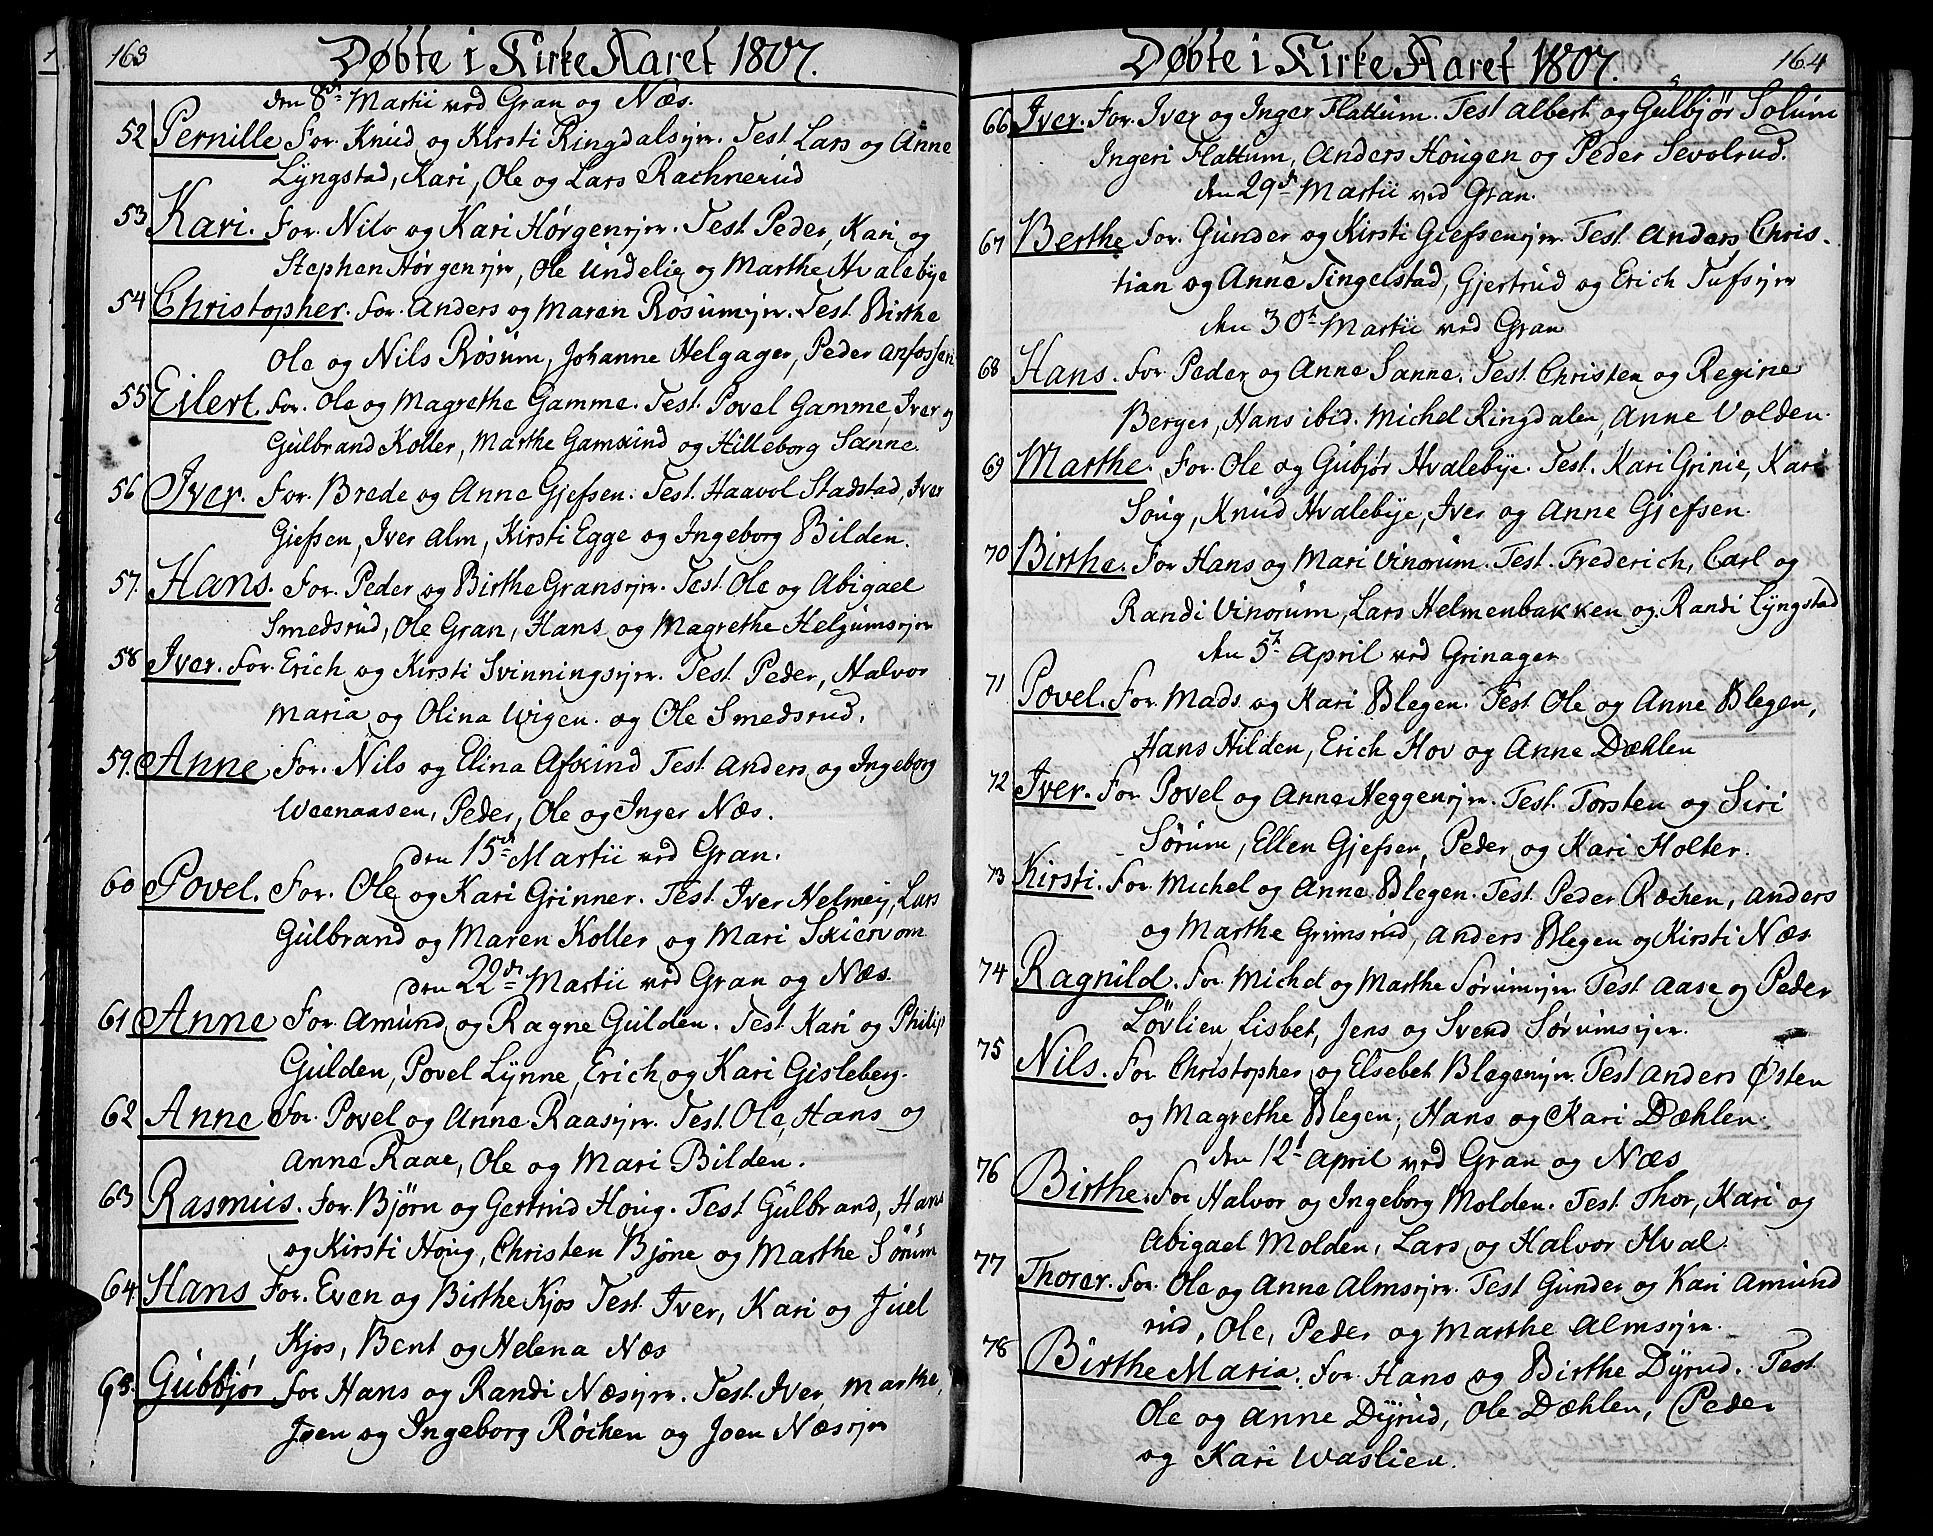 163
Døbte i Kirke Aaret 1807.
den 8de Martii ved Gran og Næs.
52 Pernille For. Knud og Kirsti Ringdalsejer. Test Lars og Anne
Lyngstad, Kari, Ole og Lars Rachnerud
53 Kari. For. Nils og Kari Hørgenejer. Test Peder, Kari og
Stephen Hørgenejer, Ole Undelie og Marthe Hvalebye
54 Christopher. For. Anders og Maren Røsumejer. Test Birthe
Ole og Nils Røsum, Johanne Helgager, Peder
55 Eilert. For. Ole og Magrethe Gamme. Test Povel Gamme, Iver og
Gulbrand Koller, Marthe Gamkind og Hilleborg Sanne.
56 Iver. For. Brede og Anne Gjefsen. Test Haavol Stadstad, Iver
Giefsen, Iver Alm, Kirsti Egge og Ingeborg Bilden.
57. Hans. For. Peder og Birthe Gransejer. Test Ole og Abigael
Smedsrud, Ole Gran, Hans og Magrethe Helgumsejer
58 Iver. For. Erich og Kirsti Svinningsejer. Test Peder, Halvor
Maria og Olina Wigen. og Ole Smedsrud.
59. Anne For. Nils og Elina Afkind Test Anders og Ingeborg
Weenaasen, Peder, Ole og Inger Næs.
den 15de Martii ved Gran.
60 Povel. For. Ole og Kari Grinner. Test Iver Helmey, Lars
Gulbrand og Maren Koller og Mari Skiervom
den 22de Martii ved Gran og Næs.
61 Anne For. Amund og Ragne Gulden. Test Kari og Philip
Gulden, Povel Lynne, Erich og Kari Gisleberg.
62 Anne For. Povel og Anne Raasejer. Test Ole, Hans og
Anne Raae, Ole og Mari Bilden.
63 Rasmus. For. Bjørn og Gertrud Houg. Test Gulbrand, Hans
og Kirsti Houg, Christen Bjøne og Marthe Sørum
64 Hans For. Even og Birthe Kjos Test Iver, Kari og Juel
Kjos, Bent og Helena Næs
65. Gubbjør For Hans og Randi Næsejer. Test Iver Marthe,
Joen og Ingeborg Røchen og Joen Næsejer
164
Døbte i Kirke Aaret 1807.
66 Iver. For. Iver og Inger Flattum. Test Albert og Gulbjør Solum
Ingeri Flattum, Anders Hougen og Peder Sevolrud.
den 29de Martii ved Gran.
67 Berthe For. Gunder og Kirsti Giefsenejer. Test Anders Chris-
tian og Anne Tingelstad, Gjertrud og Erich Tufsejer
den 30te Martii ved Gran
68 Hans. For Peder og Anne Sanne. Test Christen og Regine
Berger, Hans ibid. Michel Ringdalen, Anne Volden.
69 Marthe. For. Ole og Gubjør Hvalebye. Test. Kari Grinie, Kari
Soug, Knud Hvalebye, Iver og Anne Gjefsen.
70 Birthe. For Hans og Mari Vinorum. Test. Frederich, Carl og
Randi Vinorum, Lars Helmenbakken og Randi Lyngstad
den 5te April ved Grinager
71 Povel. For Mads og Kari Blegen. Test Ole og Anne Blegen,
Hans Hilden, Erich Hov og Anne Dæhlen
72 Iver. For Povel og Anne Heggenejer. Test. Torsten og Siri
Sørum, Ellen Gjefsen, Peder og Kari Holter.
73 Kirsti. For. Michel og Anne Blegen. Test Peder Ræchen, Anders
og Marthe Grimsrud, Anders Blegen og Kirsti Næs
74 Ragnild. For Michel og Marthe Sørumejer. Test Aase og Peder
Løvlien, Lisbet, Jens og Svend Sørumsejer.
75 Nils. For Christopher og Elsebet Blegenejer. Test Anders Østen
og Magrethe Blegen, Hans og Kari Dæhlen.
den 12te April ved Gran og Næs
76 Birthe. For Halvor og Ingeborg Molden. Test Thor, Kari og
Abigael Molden, Lars og Halvor Hval.
77 Thorer. For. Ole og Anne Almsejer. Test Gunder og Kari Amund
rud, Ole, Peder og Marthe Almsejer.
78 Birthe Maria. For. Hans og Birthe Dyrud. Test
Ole og Anne Dyrud, Ole Dæhlen, Peder
og Kari Waslien.